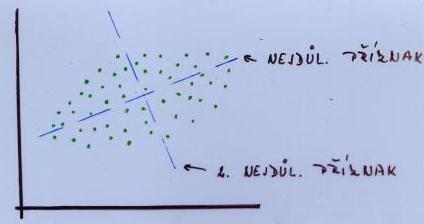 NEJDŮL. PŘÍZNAK
2. NEJDŮL. PŘÍZNAK